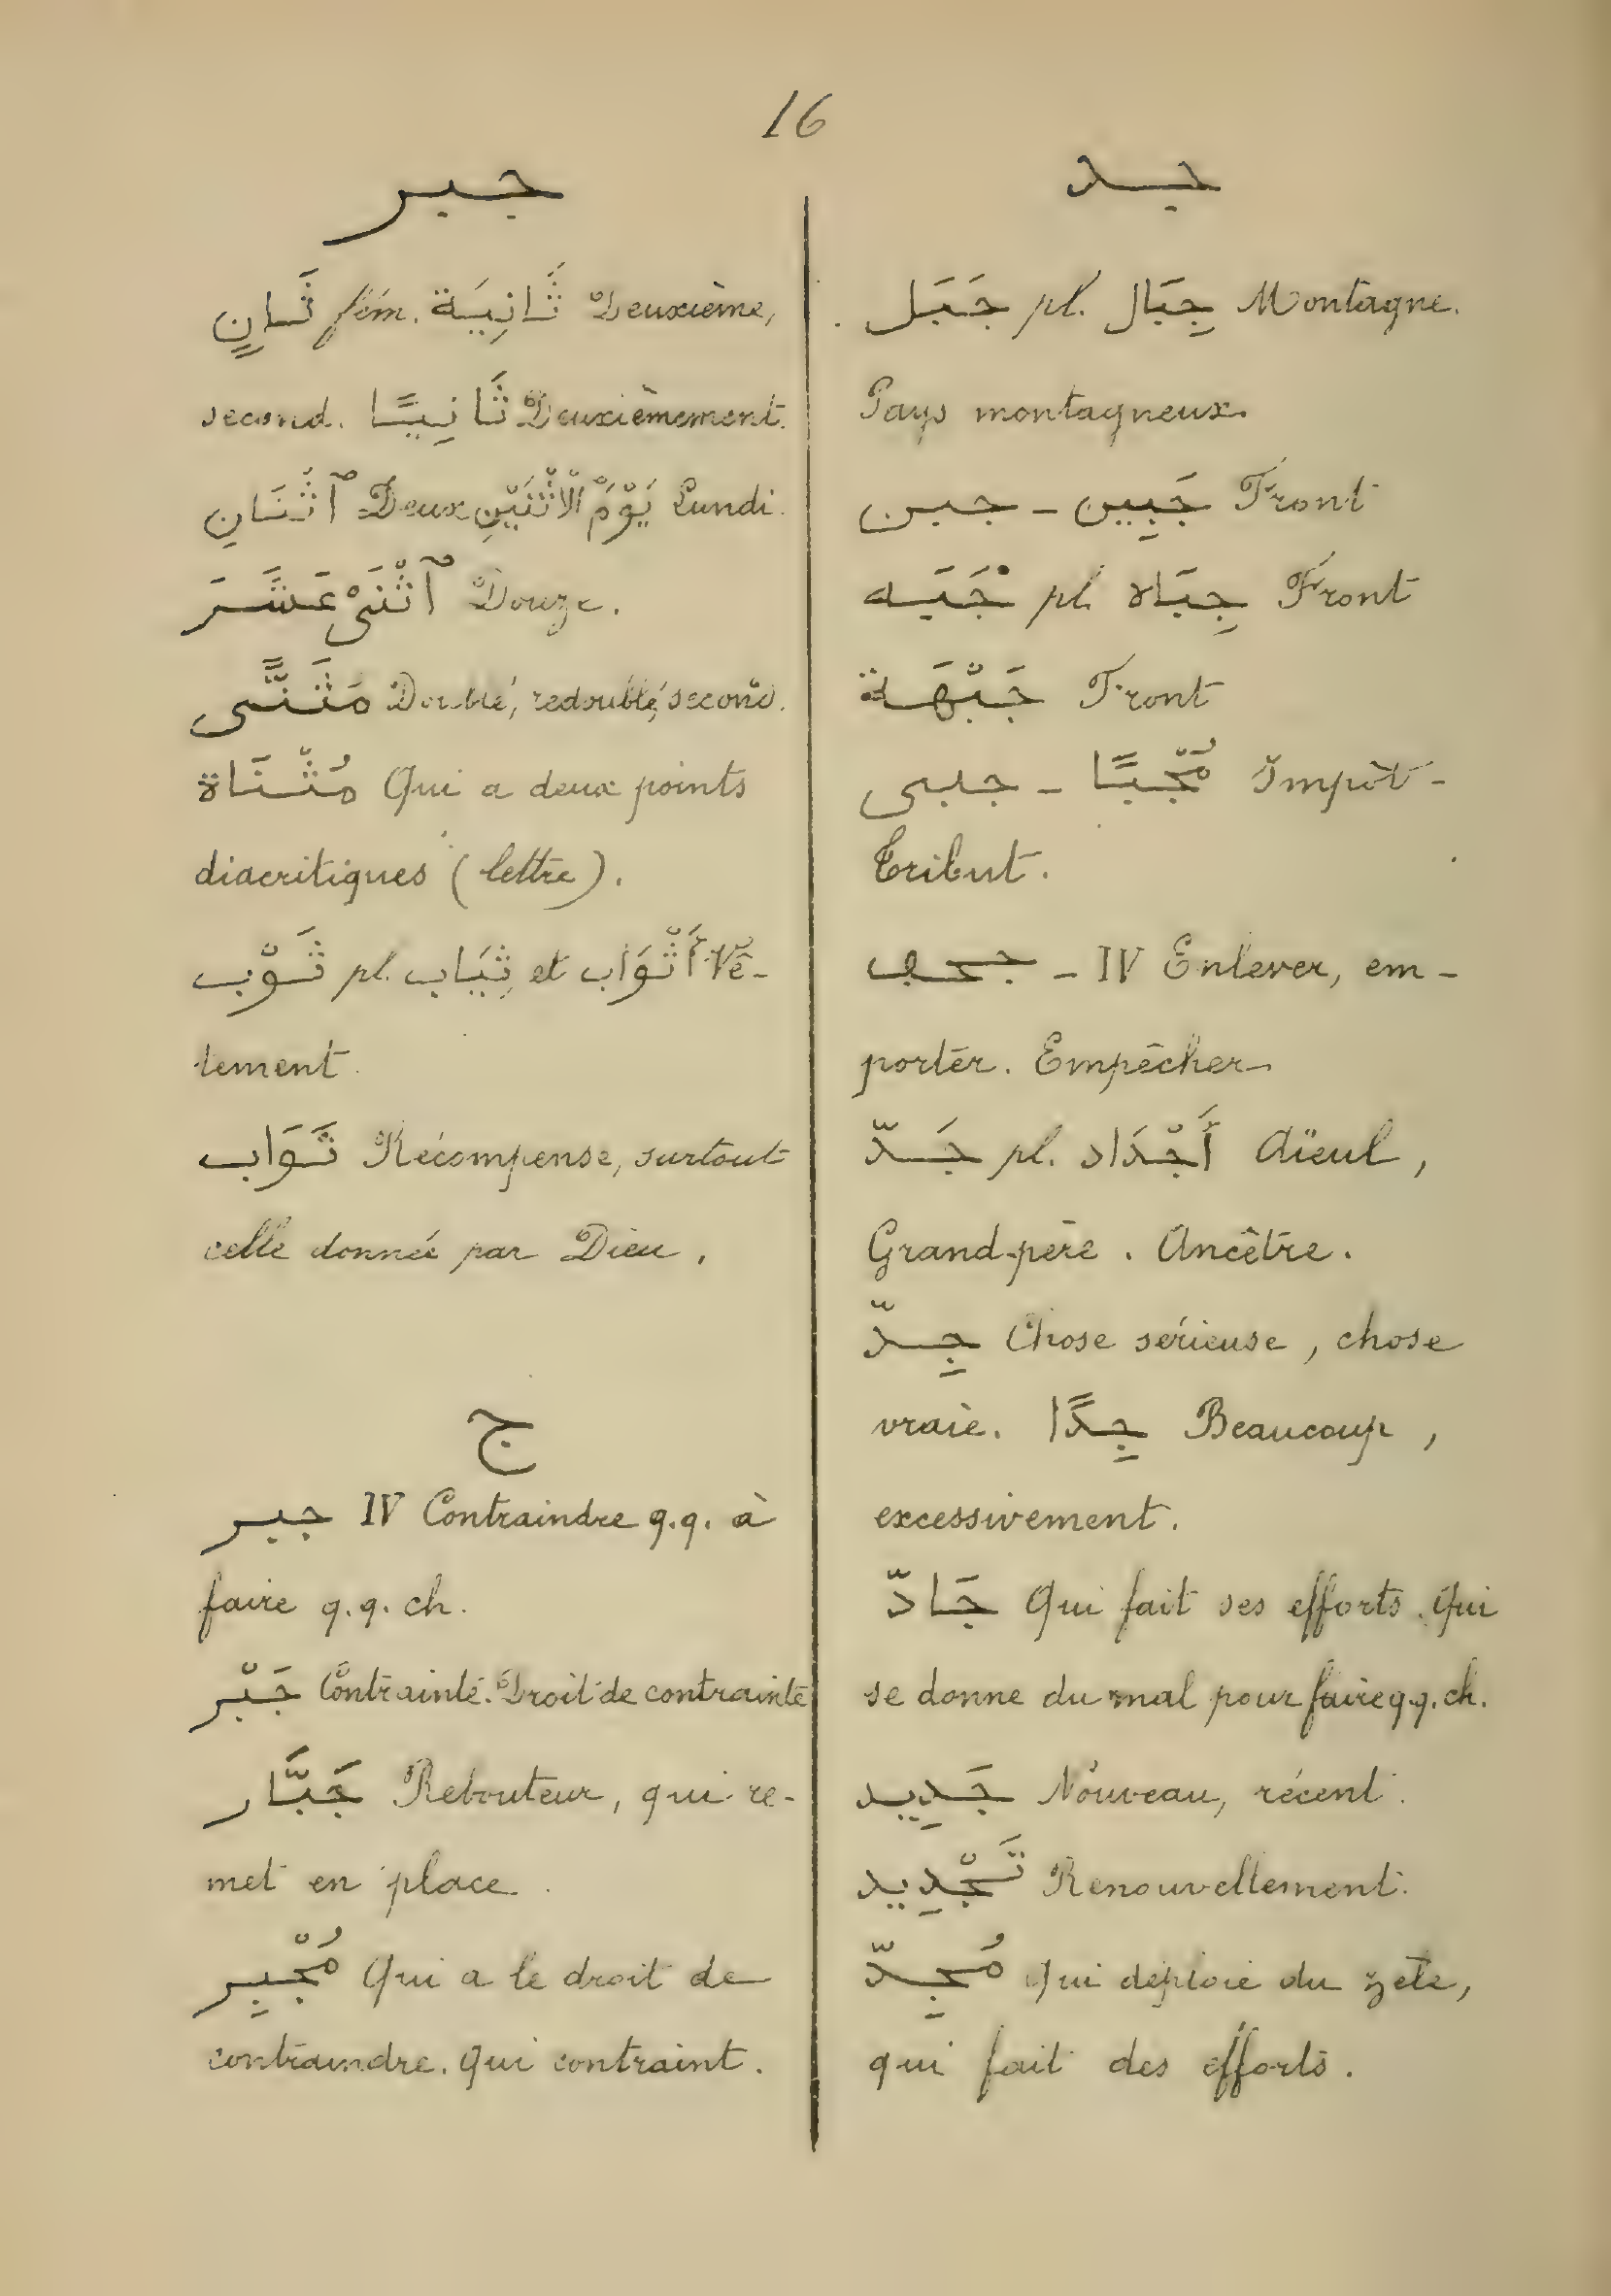 16
جبر
ثَانٍ fém. ثَانِيَة Deuxième,
second. ثَانِيًا Deuxièmement.
ٱثْنَانِ Deux يَوْمُ ٱلْاثْنَيْنِ Lundi.
ٱثْنَىْ عَشَرَ Douze.
مَثَنًّى Doublé, redoublé, second.
مُثْنَاة Qui a deux points
diacritiques (lettre).
ثَوْب pl. ثِيَاب et أَثْوَاب Vê-
tement.
ثَوَاب Récompense, surtout
celle donnée par Dieu.
ج
جبر IV Contraindre q.q. à
faire q.q. ch.
جَبْر Contrainte. Droit de contrainte
جَبَّار Rebouteur, qui re-
met en place.
مُجْبِر Qui a le droit de
contraindre. Qui contraint.
جد
جَبَل pl. جِبَال Montagne.
Pays montagneux.
جبن - جَبِين Front
pl. جِبَاه Front
جَبْهَة Front
جبى - مُجْبًا Impôt -
Tribut.
- IV Enlever, em-
porter. Empêcher
جَدّ pl. أَجْدَاد Aïeul,
Grand-père. Ancêtre.
جِدّ Chose sérieuse, chose
vraie. جِدًّا Beaucoup,
excessivement.
جَادّ Qui fait ses efforts. Qui
se donne du mal pour faire q.q. ch.
جَدِيد Nouveau, récent.
تَجْدِيد Renouvellement.
مُجِدّ Qui déploie du zèle,
qui fait des efforts.